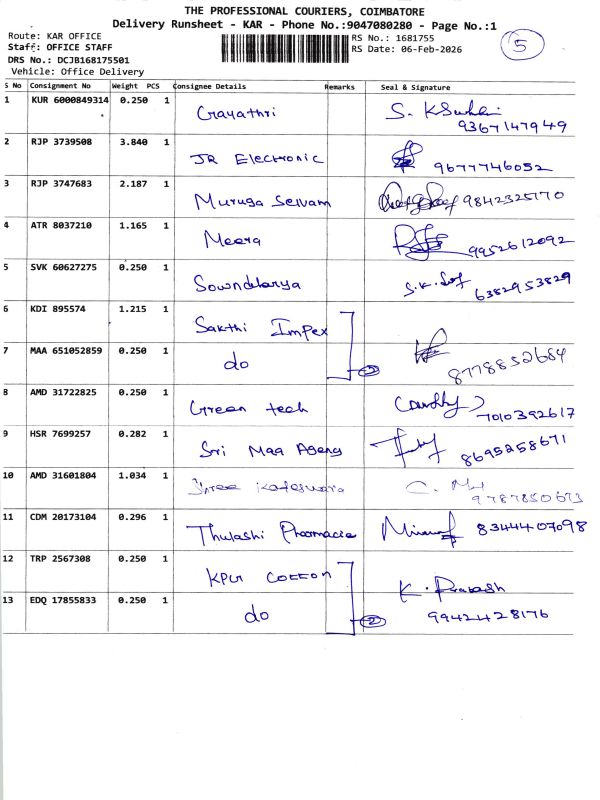 THE PROFESSIONAL COURIERS, COIMBATORE
Delivery Runsheet - KAR - Phone No.:9047080280 - Page No.:1
Route: KAR OFFICE
Staff: OFFICE STAFF
DRS No.: DCJB168175501
Vehicle: Office Delivery
RS No.: 1681755
RS Date: 06-Feb-2026
5
S No Consignment No Weight PCS Consignee Details Remarks Seal & Signature
1 KUR 6000849314 0.250 1 Gayathri 9367147949
2 RJP 3739508 3.840 1 JR Electronic 9677746052
3 RJP 3747683 2.187 1 Muruga Selvam 9842325170
4 ATR 8037210 1.165 1 Meera 9952612092
5 SVK 60627275 0.250 1 Sowndarya 6382953829
6 KDI 895574 1.215 1 Sakthi Impex
7 MAA 651052859 0.250 1 do 2 8778852684
8 AMD 31722825 0.250 1 Green tech 7010392617
9 HSR 7699257 0.282 1 Sri Maa Ageng 8695258671
10 AMD 31601804 1.034 1 9787850673
11 CDM 20173104 0.296 1 Thulashi Pharmacie 8344407098
12 TRP 2567308 0.250 1 KPR Cotton K. Prakash
13 EDQ 17855833 0.250 1 do 2 9942428176